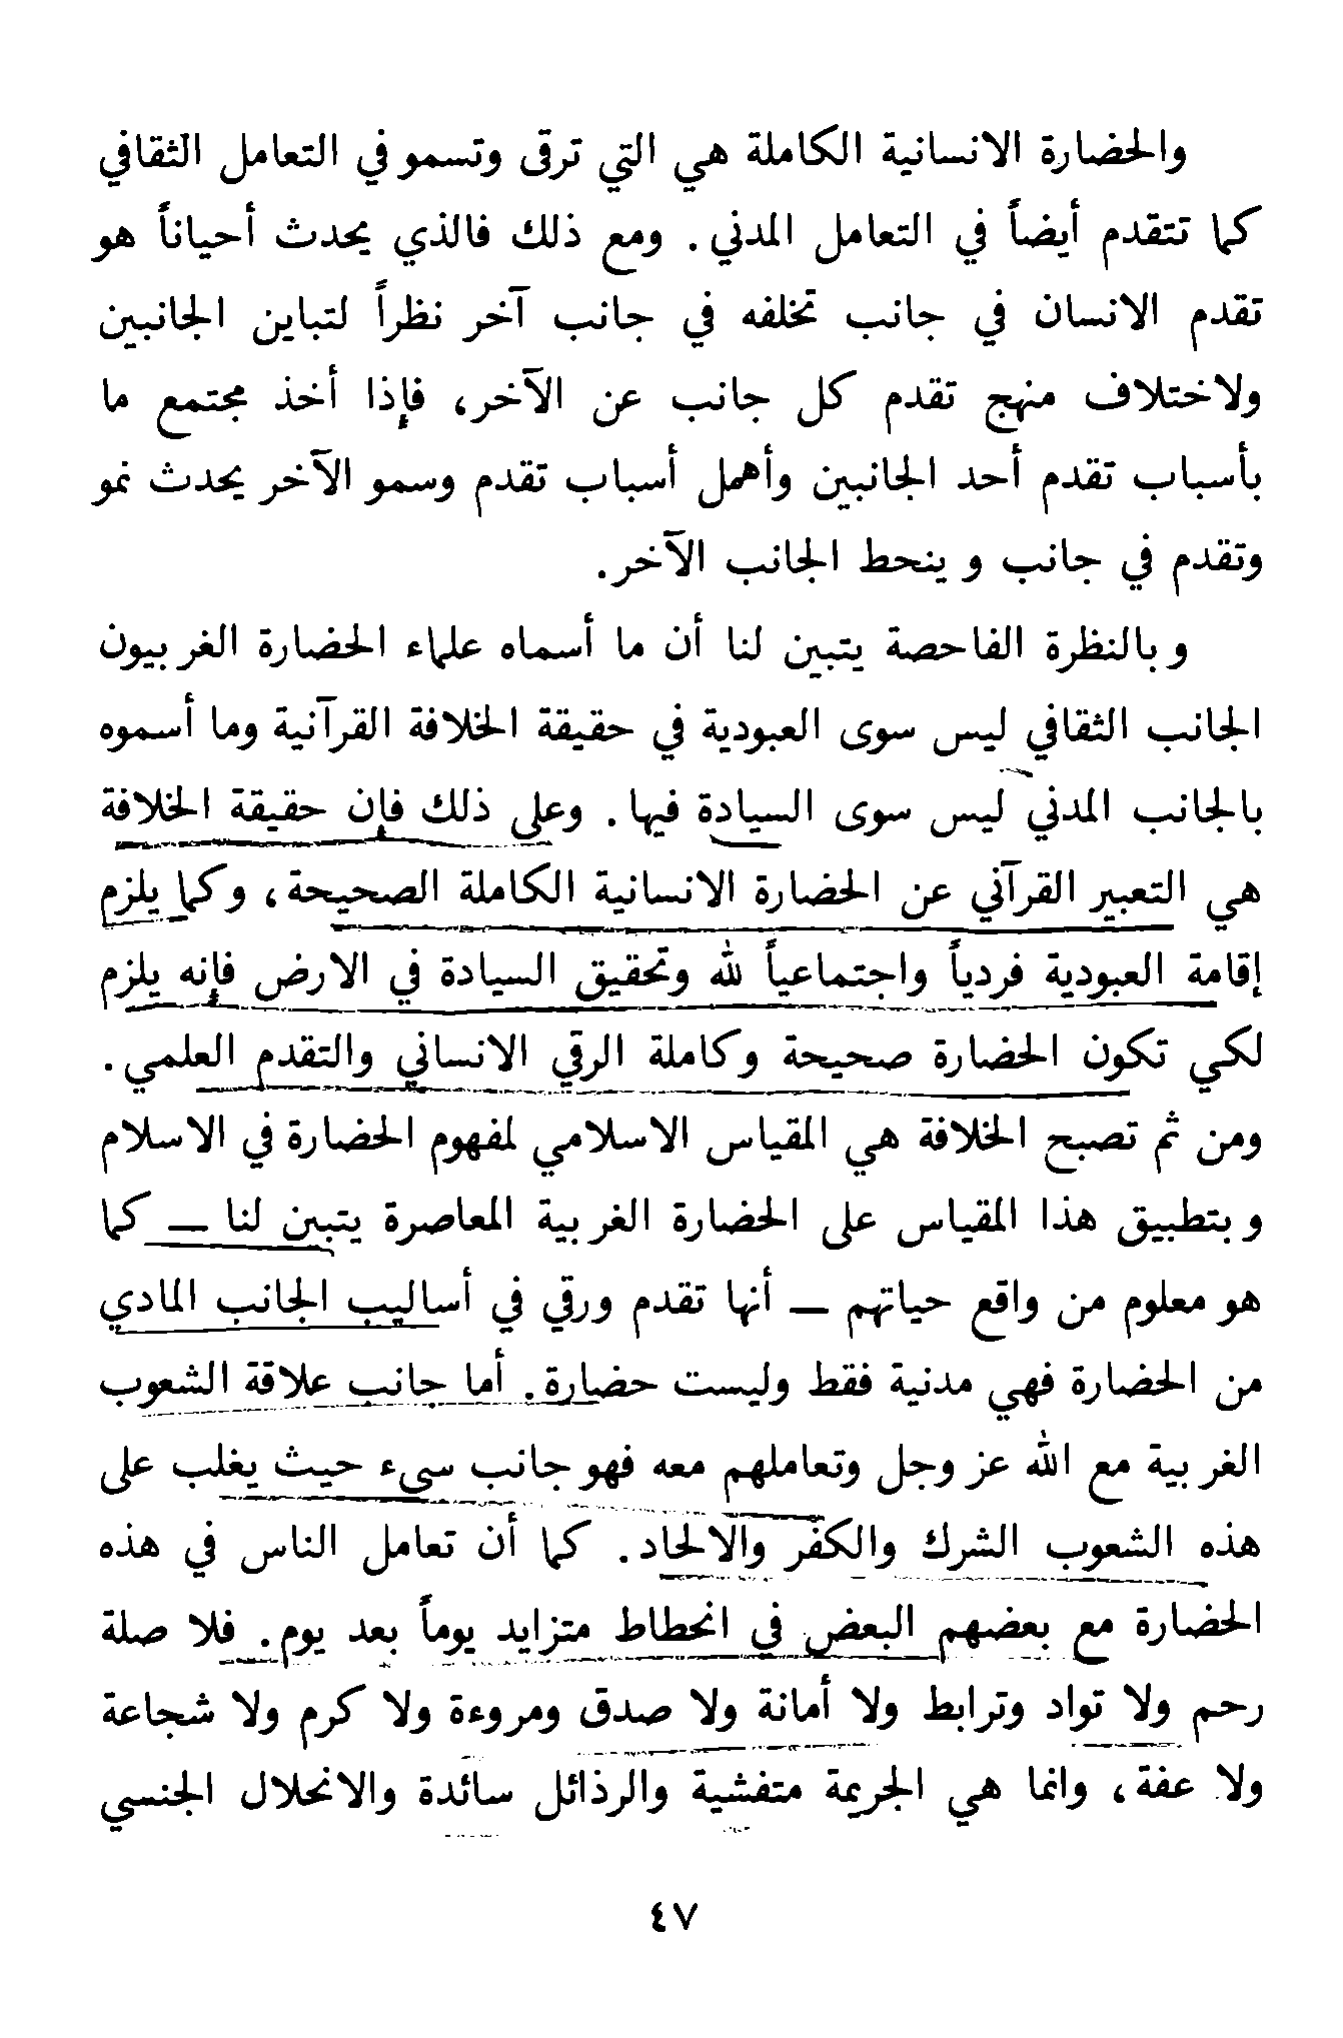 والحضارة الانسانية الكاملة هي التي ترقى وتسمو في التعامل الثقافي
كما تتقدم أيضاً في التعامل المدني . ومع ذلك فالذي يحدث أحياناً هو
تقدم الانسان في جانب تخلفه في جانب آخر نظراً لتباين الجانبين
ولاختلاف منهج تقدم كل جانب عن الآخر، فإذا أخذ مجتمع ما
بأسباب تقدم أحد الجانبين وأهمل أسباب تقدم وسمو الآخر يحدث نمو
وتقدم في جانب و ينحط الجانب الآخر.
و بالنظرة الفاحصة يتبين لنا أن ما أسماه علماء الحضارة الغربيون
الجانب الثقافي ليس سوى العبودية في حقيقة الخلافة القرآنية وما أسموه
بالجانب المدني ليس سوى السيادة فيها . وعلى ذلك فإن حقيقة الخلافة
هي التعبير القرآني عن الحضارة الانسانية الكاملة الصحيحة، وكما يلزم
إقامة العبودية فردياً واجتماعياً لله وتحقيق السيادة في الارض فإنه يلزم
لكي تكون الحضارة صحيحة وكاملة الرقي الانساني والتقدم العلمي .
ومن ثم تصبح الخلافة هي المقياس الاسلامي لمفهوم الحضارة في الاسلام
و بتطبيق هذا المقياس على الحضارة الغربية المعاصرة يتبين لنا — كما
هو معلوم من واقع حياتهم — أنها تقدم ورقي في أساليب الجانب المادي
من الحضارة فهي مدنية فقط وليست حضارة. أما جانب علاقة الشعوب
الغربية مع الله عز وجل وتعاملهم معه فهو جانب سيء حيث يغلب على
هذه الشعوب الشرك والكفر والالحاد. كما أن تعامل الناس في هذه
الحضارة مع بعضهم البعض في انحطاط متزايد يوماً بعد يوم. فلا صلة
رحم ولا تواد وترابط ولا أمانة ولا صدق ومروءة ولا كرم ولا شجاعة
ولا عفة، وانما هي الجريمة متفشية والرذائل سائدة والانحلال الجنسي
٤٧